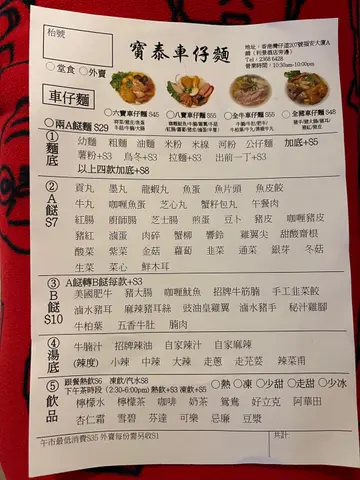 枱號
寶泰車仔麵
地址：香港灣仔道207號福安大廈A
Tel：2368 6428
營業時間：10:30am-10:00pm
○堂食 ○外賣
車仔麵
○六寶車仔麵$45 ○八寶車仔麵$55 ○全牛車仔麵$55 ○全豬車仔麵$48
○兩A餸 $29
①麵底
幼麵 粗麵 油麵 米粉 米線 河粉 公仔麵 加底+$5
薯粉+$3 烏冬+$3 拉麵+$3 出前一丁+$3
以上四款加底+$8
②A餸 $7
貢丸 墨丸 龍蝦丸 魚蛋 魚片頭 魚皮餃
牛丸 咖喱魚蛋 芝心丸 蟹籽包丸 午餐肉
紅腸 廚師腸 芝士腸 煎蛋 豆卜 豬皮 咖喱豬皮
豬紅 滷蛋 肉碎 蟹柳 響鈴 雞翼尖 甜酸齋根
酸菜 紫菜 金菇 蘿蔔 韮菜 通菜 銀芽 冬菇
生菜 菜心 鮮木耳
③B餸 $10
A餸轉B餸每款+$3
美國肥牛 豬大腸 咖喱魷魚 招牌牛筋腩 手工韮菜餃
滷水豬耳 麻辣豬耳絲 豉油皇雞翼 滷水豬手 秘汁雞腳
牛柏葉 五香牛肚 腩肉
④湯底
牛腩汁 招牌辣油 自家辣汁 自家麻辣
(辣度) 小辣 中辣 大辣 走蔥 走芫荽 辣菜甫
⑤飲品
跟餐熱飲$6 凍飲/汽水$8
下午茶時段(2:30-6:00pm)熱飲+$3 凍飲+$5
○熱 ○凍 ○少甜 ○走甜 ○少冰
檸檬水 檸檬茶 咖啡 奶茶 鴛鴦 好立克 阿華田
杏仁霜 雪碧 芬達 可樂 忌廉 豆漿
午市最低消費$35 外賣每份需另收$1
共計: